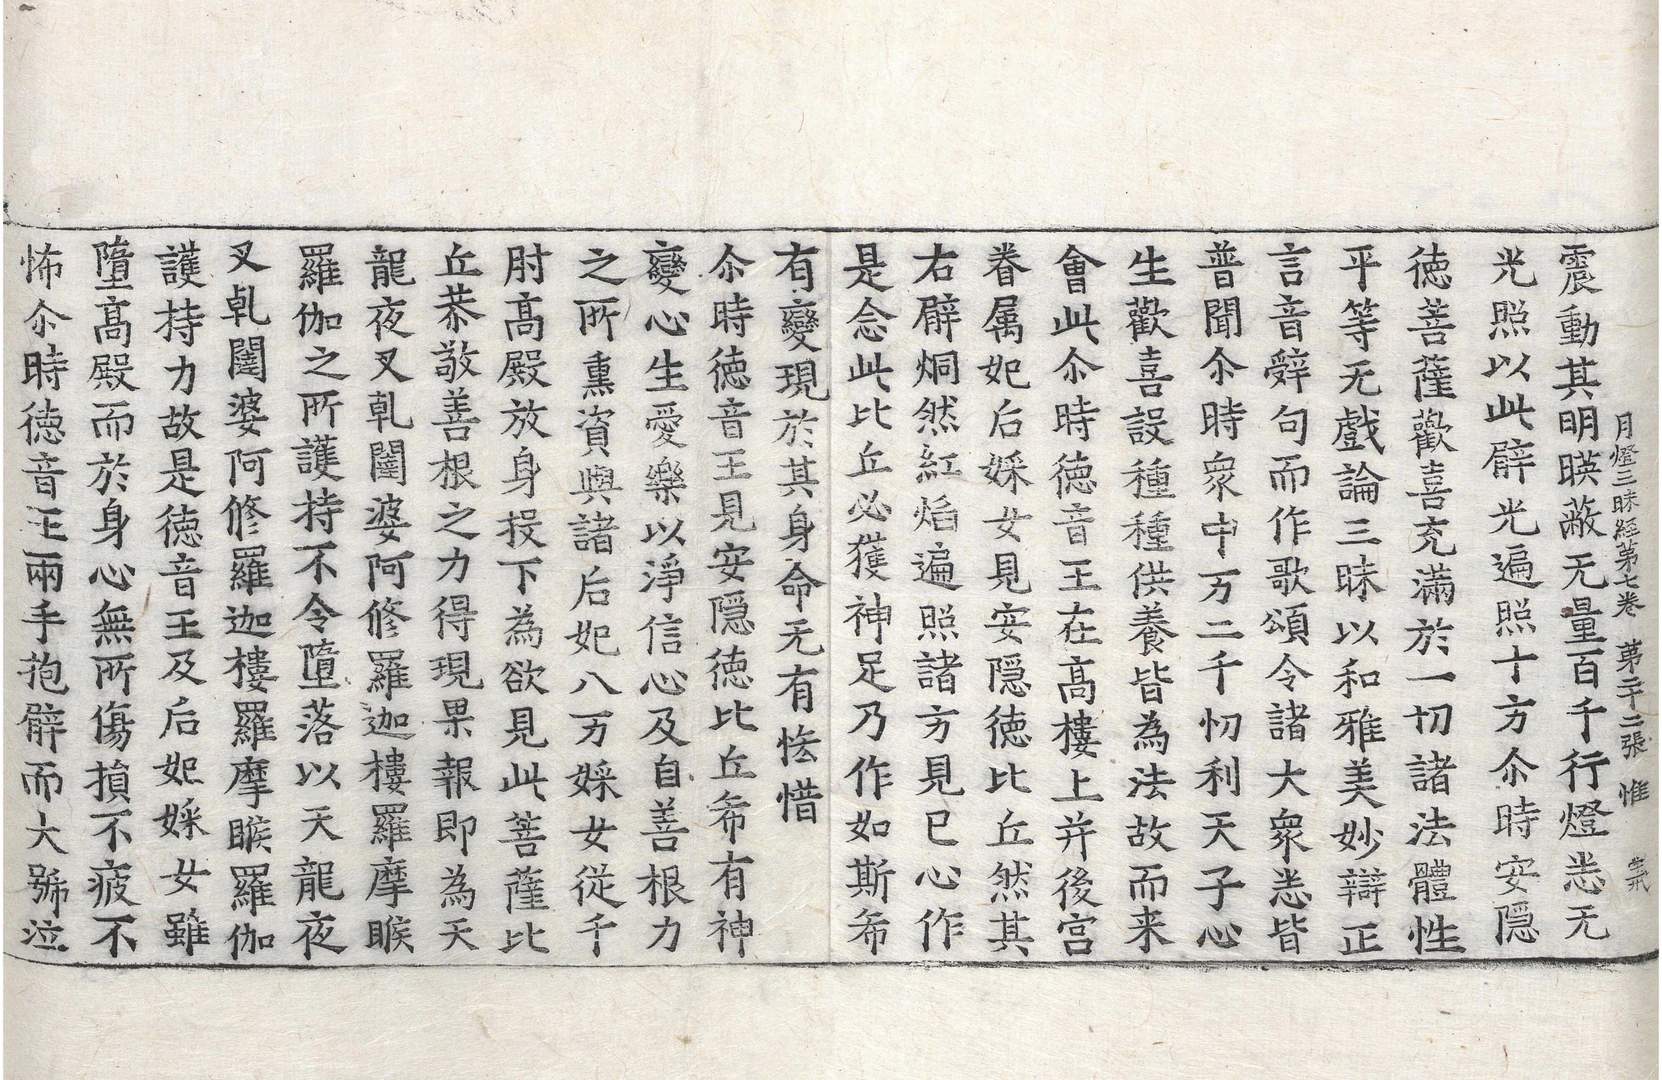 月燈三昧經第七卷 第二十二張 惟
震動其明暎蔽无量百千行燈悉无
光照以此臂光遍照十方尒時安隱
德菩薩歡喜充滿於一切諸法體性
平等无戲論三昧以和雅美妙辯正
言音辭句而作歌頌令諸大衆悉皆
普聞尒時衆中万二千忉利天子心
生歡喜設種種供養皆為法故而来
會此尒時德音王在高樓上并後宮
眷属妃后婇女見安隱德比丘然其
右臂烔然紅焰遍照諸方見已心作
是念此比丘必獲神足乃作如斯希
有變現於其身命无有恡惜
尒時德音王見安隱德比丘希有神
變心生愛樂以淨信心及自善根力
之所熏資與諸后妃八万婇女從千
肘高殿放身投下為欲見此菩薩比
丘恭敬善根之力得現果報即為天
龍夜叉乹闥婆阿修羅迦樓羅摩睺
羅伽之所護持不令墮落以天龍夜
叉乹闥婆阿修羅迦樓羅摩睺羅伽
護持力故是德音王及后妃婇女雖
墮高殿而於身心無所傷損不疲不
怖尒時德音王兩手抱臂而大號泣